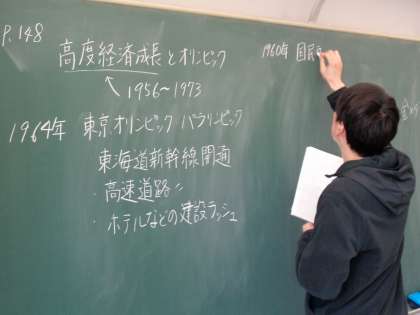 P.148
高度経済成長とオリンピック
1956〜1973
1964年 東京オリンピック パラリンピック
東海道新幹線開通
・高速道路 〃
・ホテルなどの建設ラッシュ
1960年 国民